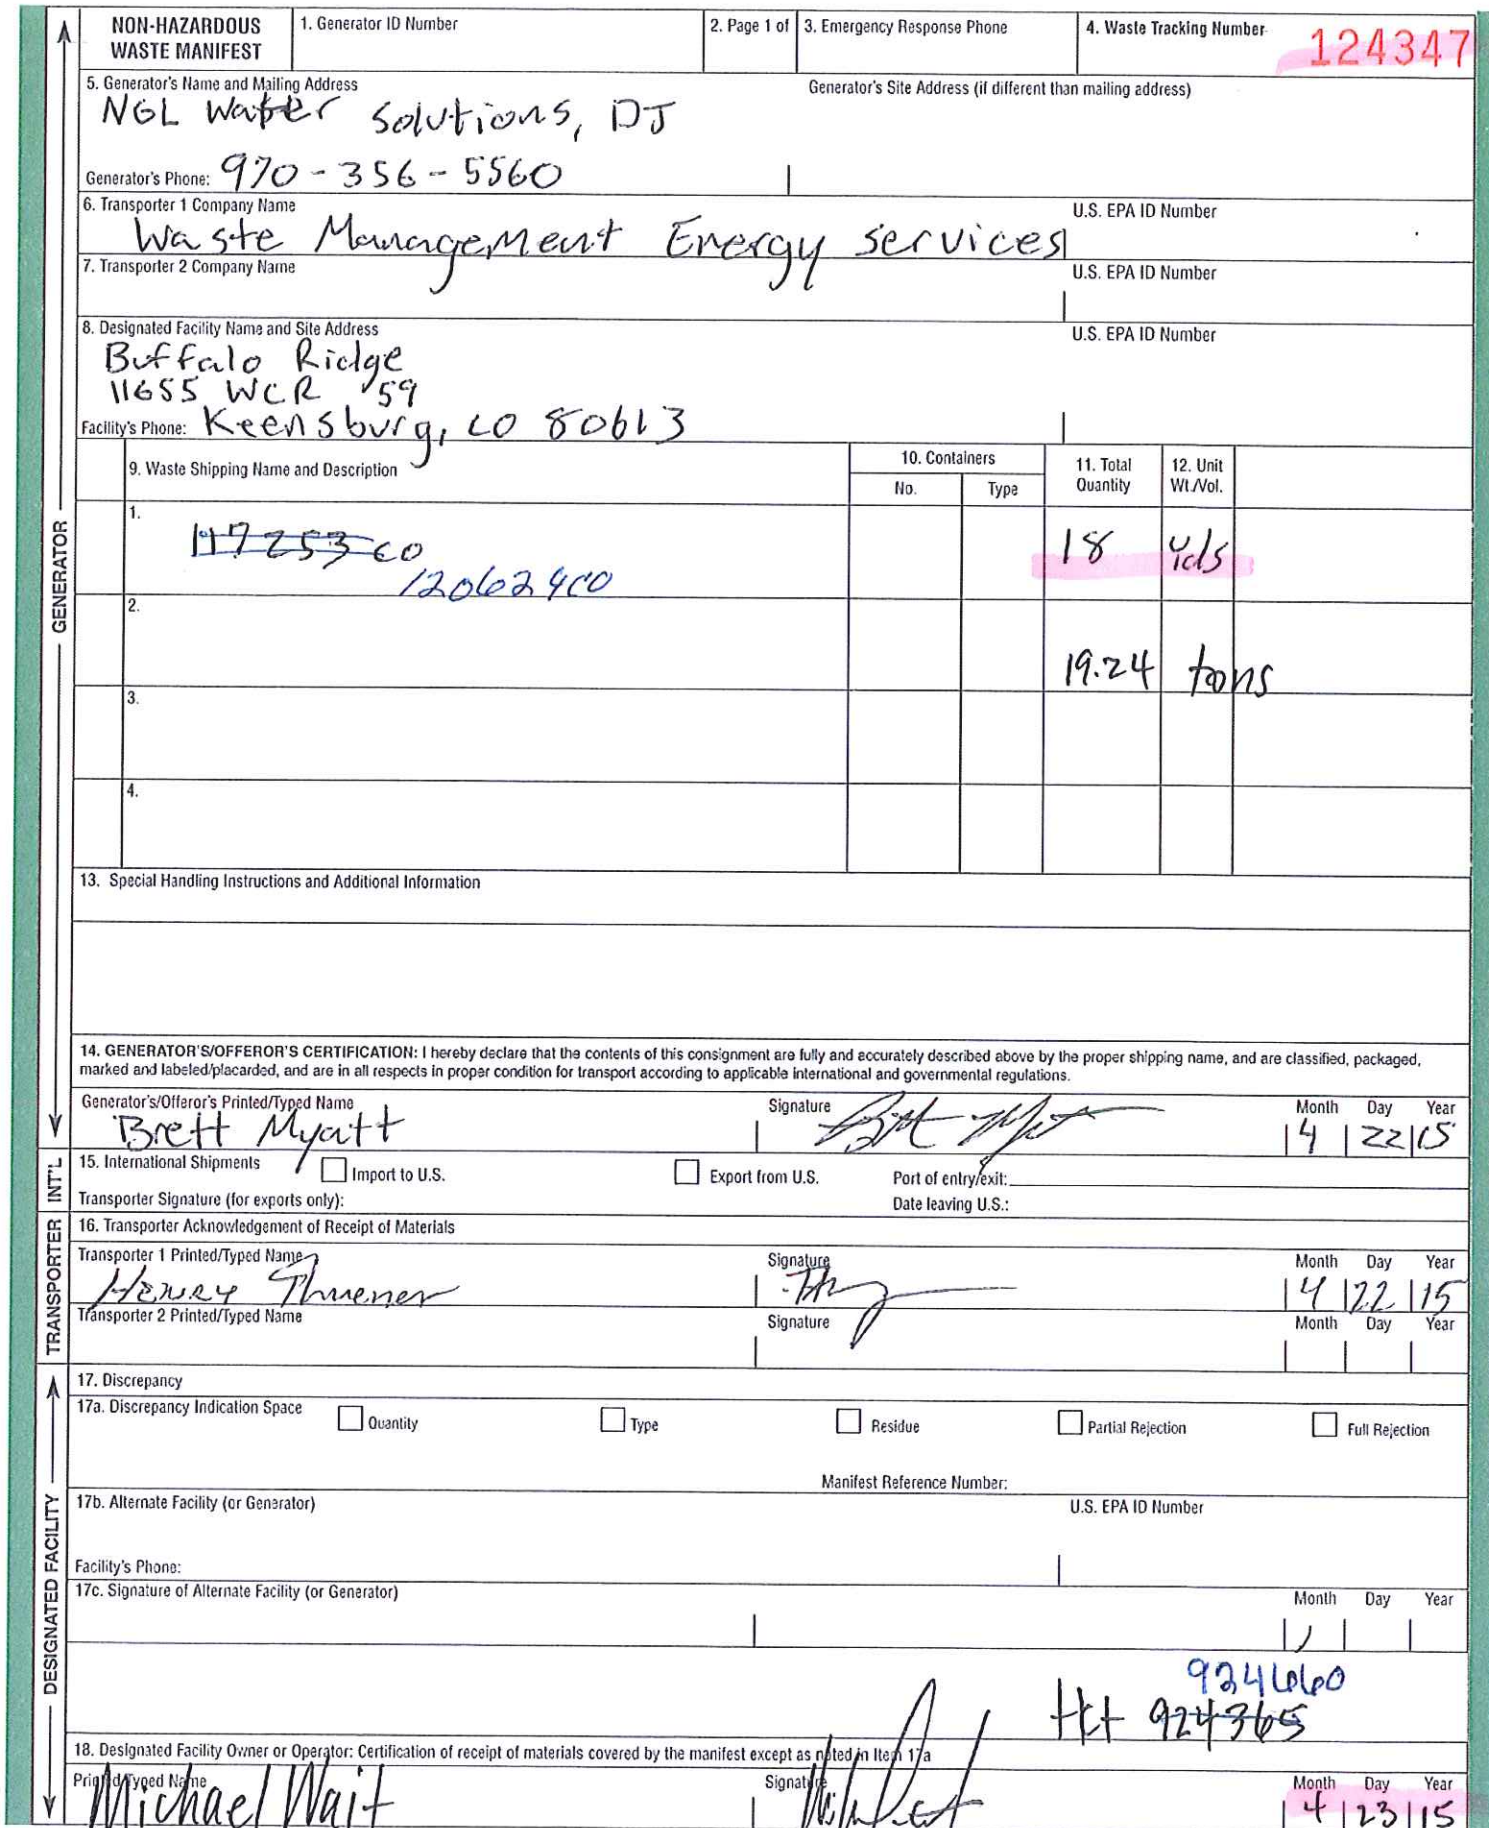 NON-HAZARDOUS WASTE MANIFEST
1. Generator ID Number
2. Page 1 of
3. Emergency Response Phone
4. Waste Tracking Number
124347
5. Generator's Name and Mailing Address
Generator's Site Address (if different than mailing address)
NGL Water Solutions, DJ
Generator's Phone: 970-356-5560
6. Transporter 1 Company Name
U.S. EPA ID Number
Waste Management Energy services
7. Transporter 2 Company Name
U.S. EPA ID Number
8. Designated Facility Name and Site Address
U.S. EPA ID Number
Buffalo Ridge
11655 WCR 59
Facility's Phone: Keensburg, CO 80613
9. Waste Shipping Name and Description
10. Containers
No.
Type
11. Total Quantity
12. Unit Wt./Vol.
1.
117253CO
18 yds
120629CO
2.
19.24 tons
3.
4.
13. Special Handling Instructions and Additional Information
14. GENERATOR'S/OFFEROR'S CERTIFICATION: I hereby declare that the contents of this consignment are fully and accurately described above by the proper shipping name, and are classified, packaged,
marked and labeled/placarded, and are in all respects in proper condition for transport according to applicable international and governmental regulations.
Generator's/Offeror's Printed/Typed Name
Signature
Month Day Year
Brett Myatt
4 22 15
15. International Shipments
Import to U.S.
Export from U.S.
Port of entry/exit:
Transporter Signature (for exports only):
Date leaving U.S.:
16. Transporter Acknowledgement of Receipt of Materials
Transporter 1 Printed/Typed Name
Signature
Month Day Year
Henry Thuener
4 22 15
Transporter 2 Printed/Typed Name
Signature
Month Day Year
17. Discrepancy
17a. Discrepancy Indication Space
Quantity
Type
Residue
Partial Rejection
Full Rejection
Manifest Reference Number:
17b. Alternate Facility (or Generator)
U.S. EPA ID Number
Facility's Phone:
17c. Signature of Alternate Facility (or Generator)
Month Day Year
924660
tkt 924365
18. Designated Facility Owner or Operator: Certification of receipt of materials covered by the manifest except as noted in Item 17a
Printed/Typed Name
Signature
Month Day Year
Michael Wait
4 23 15
GENERATOR
INT'L
TRANSPORTER
DESIGNATED FACILITY